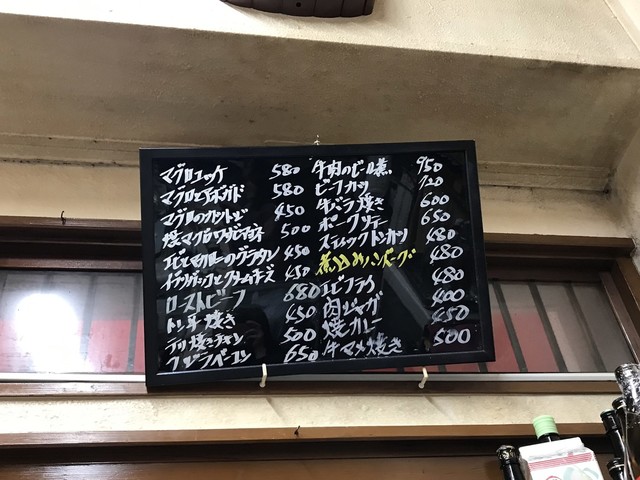 マグロユッケ 580
マグロとアボカド 580
マグロのカルトッピ 450
焼マグロワサビマヨネ 500
エビとマカロニのグラタン 450
クリームチーズ 450
ローストビーフ 680
トン平焼き 450
鉄板焼きチキン 500
クジラベーコン 650
牛肉のビール煮 950
ビーフカツ 720
牛バラ焼き 600
ポークソテー 650
スティックトンカツ 480
煮込みハンバーグ 480
エビフライ 480
肉ジャガ 400
焼カレー 450
牛マメ焼き 500